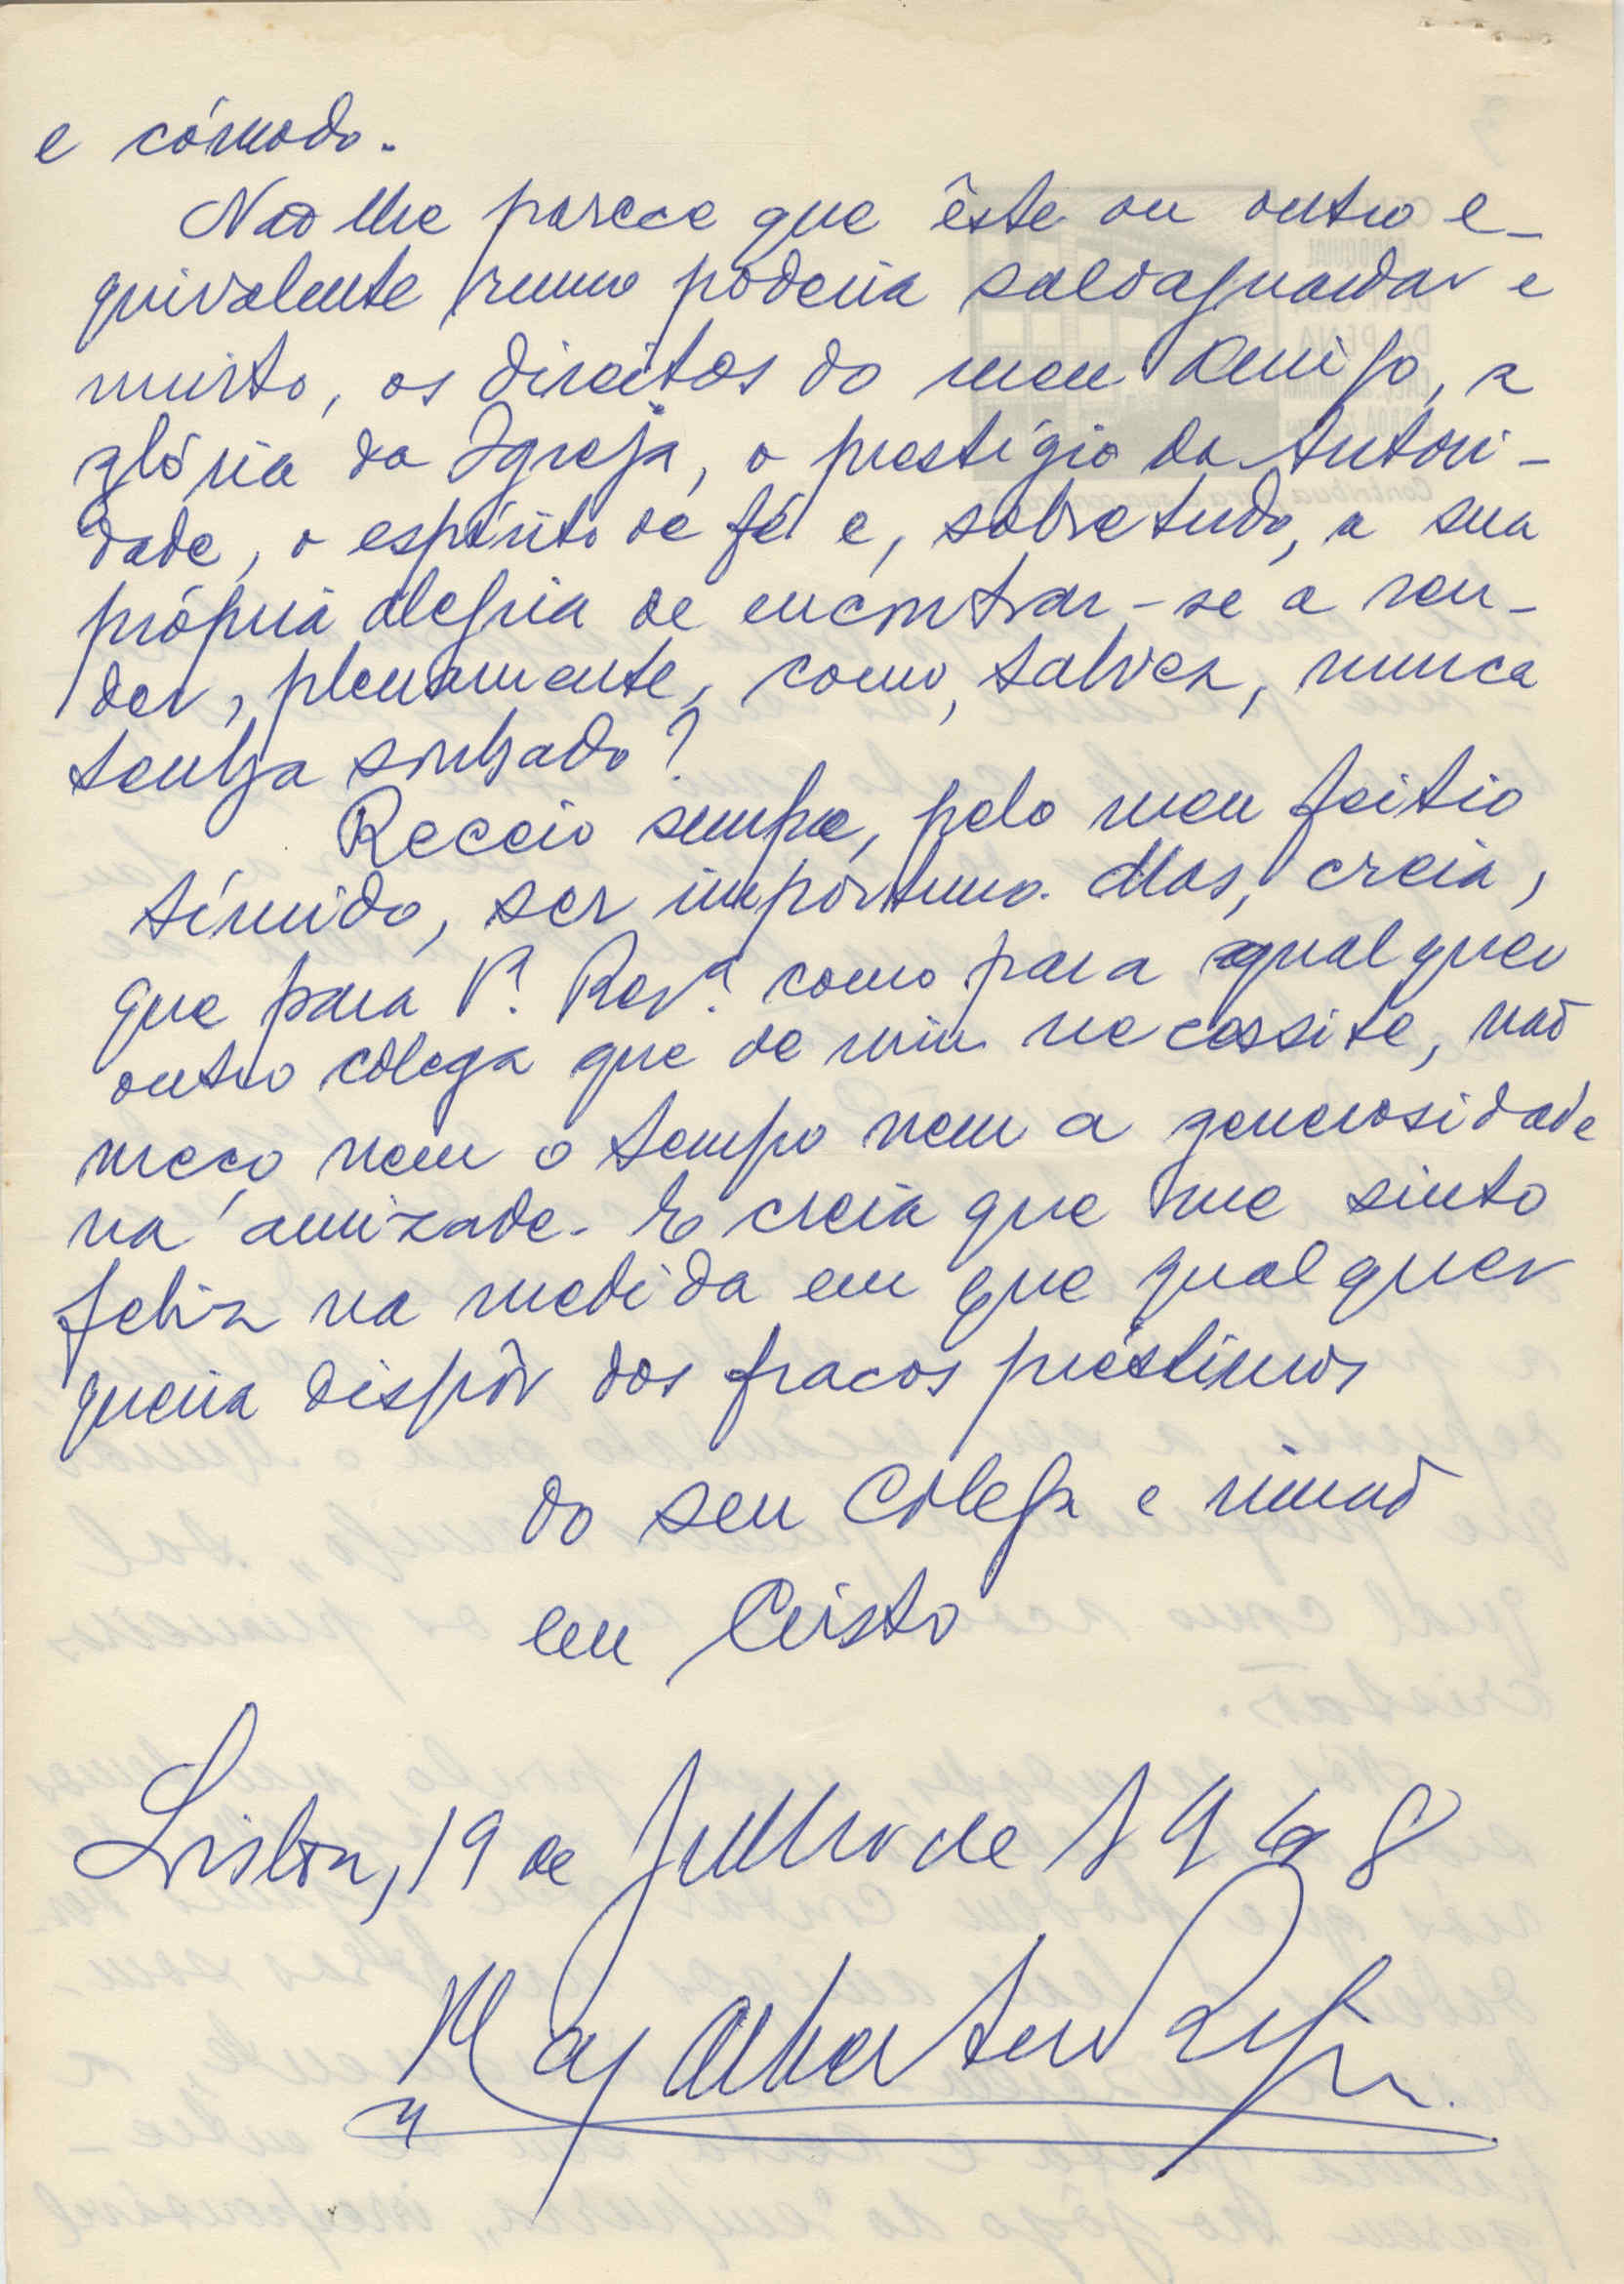 e cómodo.
Não lhe parece que êste ou outro e-
quivalente rumo poderia salvaguardar e
muito, os direitos do meu Amigo, a
glória da Igreja, o prestígio da Autori-
dade, o espírito de fé e, sobretudo, a sua
própria alegria de encontrar-se a ren-
der, plenamente, como, talvez, nunca
tenha sonhado?
Receio sempre, pelo meu feitio
tímido, ser importuno. Mas, creia,
que para V.ª Rev.ª como para qualquer
outro colega que de mim necessite, não
meço nem o tempo nem a generosidade
na amizade. E creia que me sinto
feliz na medida em que qualquer
queira dispôr dos fracos préstimos
do seu Colega e irmão
em Cristo
Lisboa, 19 de Julho de 1968